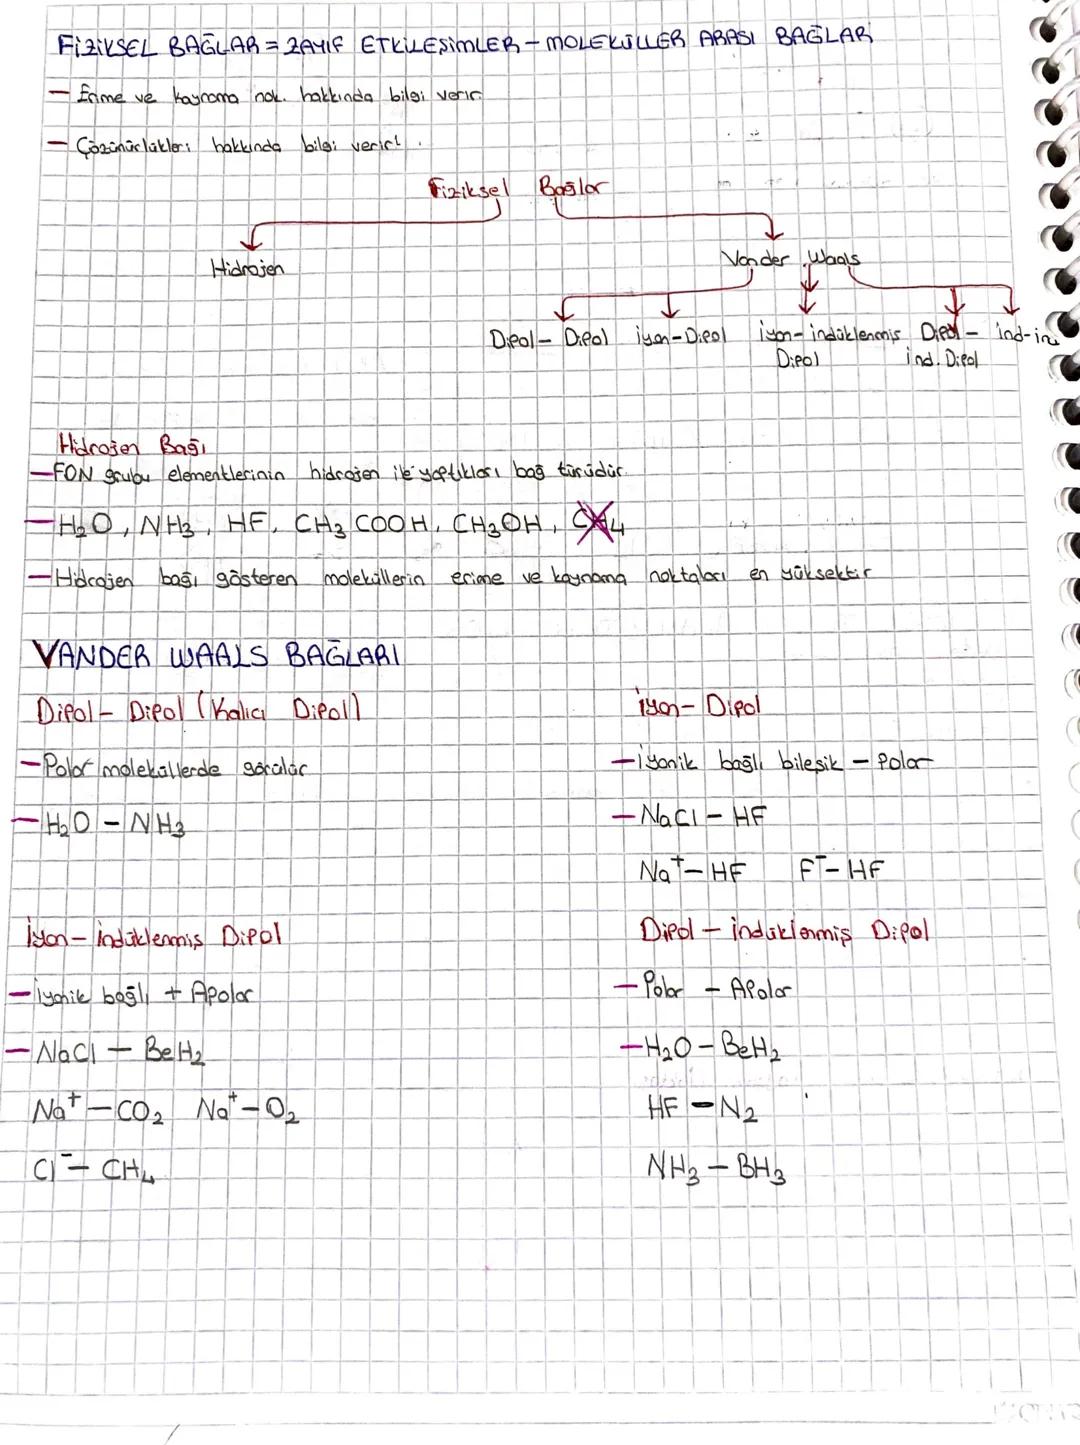 FİZİKSEL BAĞLAR = ZAYIF ETKİLEŞİMLER - MOLEKÜLLER ARASI BAĞLAR
- Erime ve kaynama nok. hakkında bilgi verir.
- Çözünürlükleri hakkında bilgi verir.
Fiziksel Bağlar
Hidrojen Vander Waals
Dipol - Dipol iyon-Dipol iyon-indüklenmiş Dipol Dipol - ind. Dipol ind-in
Hidrojen Bağı
- FON grubu elementlerinin hidrojen ile yaptıkları bağ türüdür.
- H₂O, NH₃, HF, CH₃COOH, CH₃OH, CH₄
- Hidrojen bağı gösteren moleküllerin erime ve kaynama noktaları en yüksektir
VANDER WAALS BAĞLARI
Dipol - Dipol (Kalıcı Dipol)
- Polar moleküllerde görülür
- H₂O - NH₃
iyon - Dipol
- iyonik bağlı bileşik - Polar
- NaCl - HF
Na⁺ - HF F⁻ - HF
İyon - İndüklenmiş Dipol
- iyonik bağlı + Apolar
- NaCl - BeH₂
Na⁺ - CO₂ Na⁺ - O₂
Cl⁻ - CH₄
Dipol - indüklenmiş Dipol
- Polar - Apolar
- H₂O - BeH₂
HF - N₂
NH₃ - BH₃